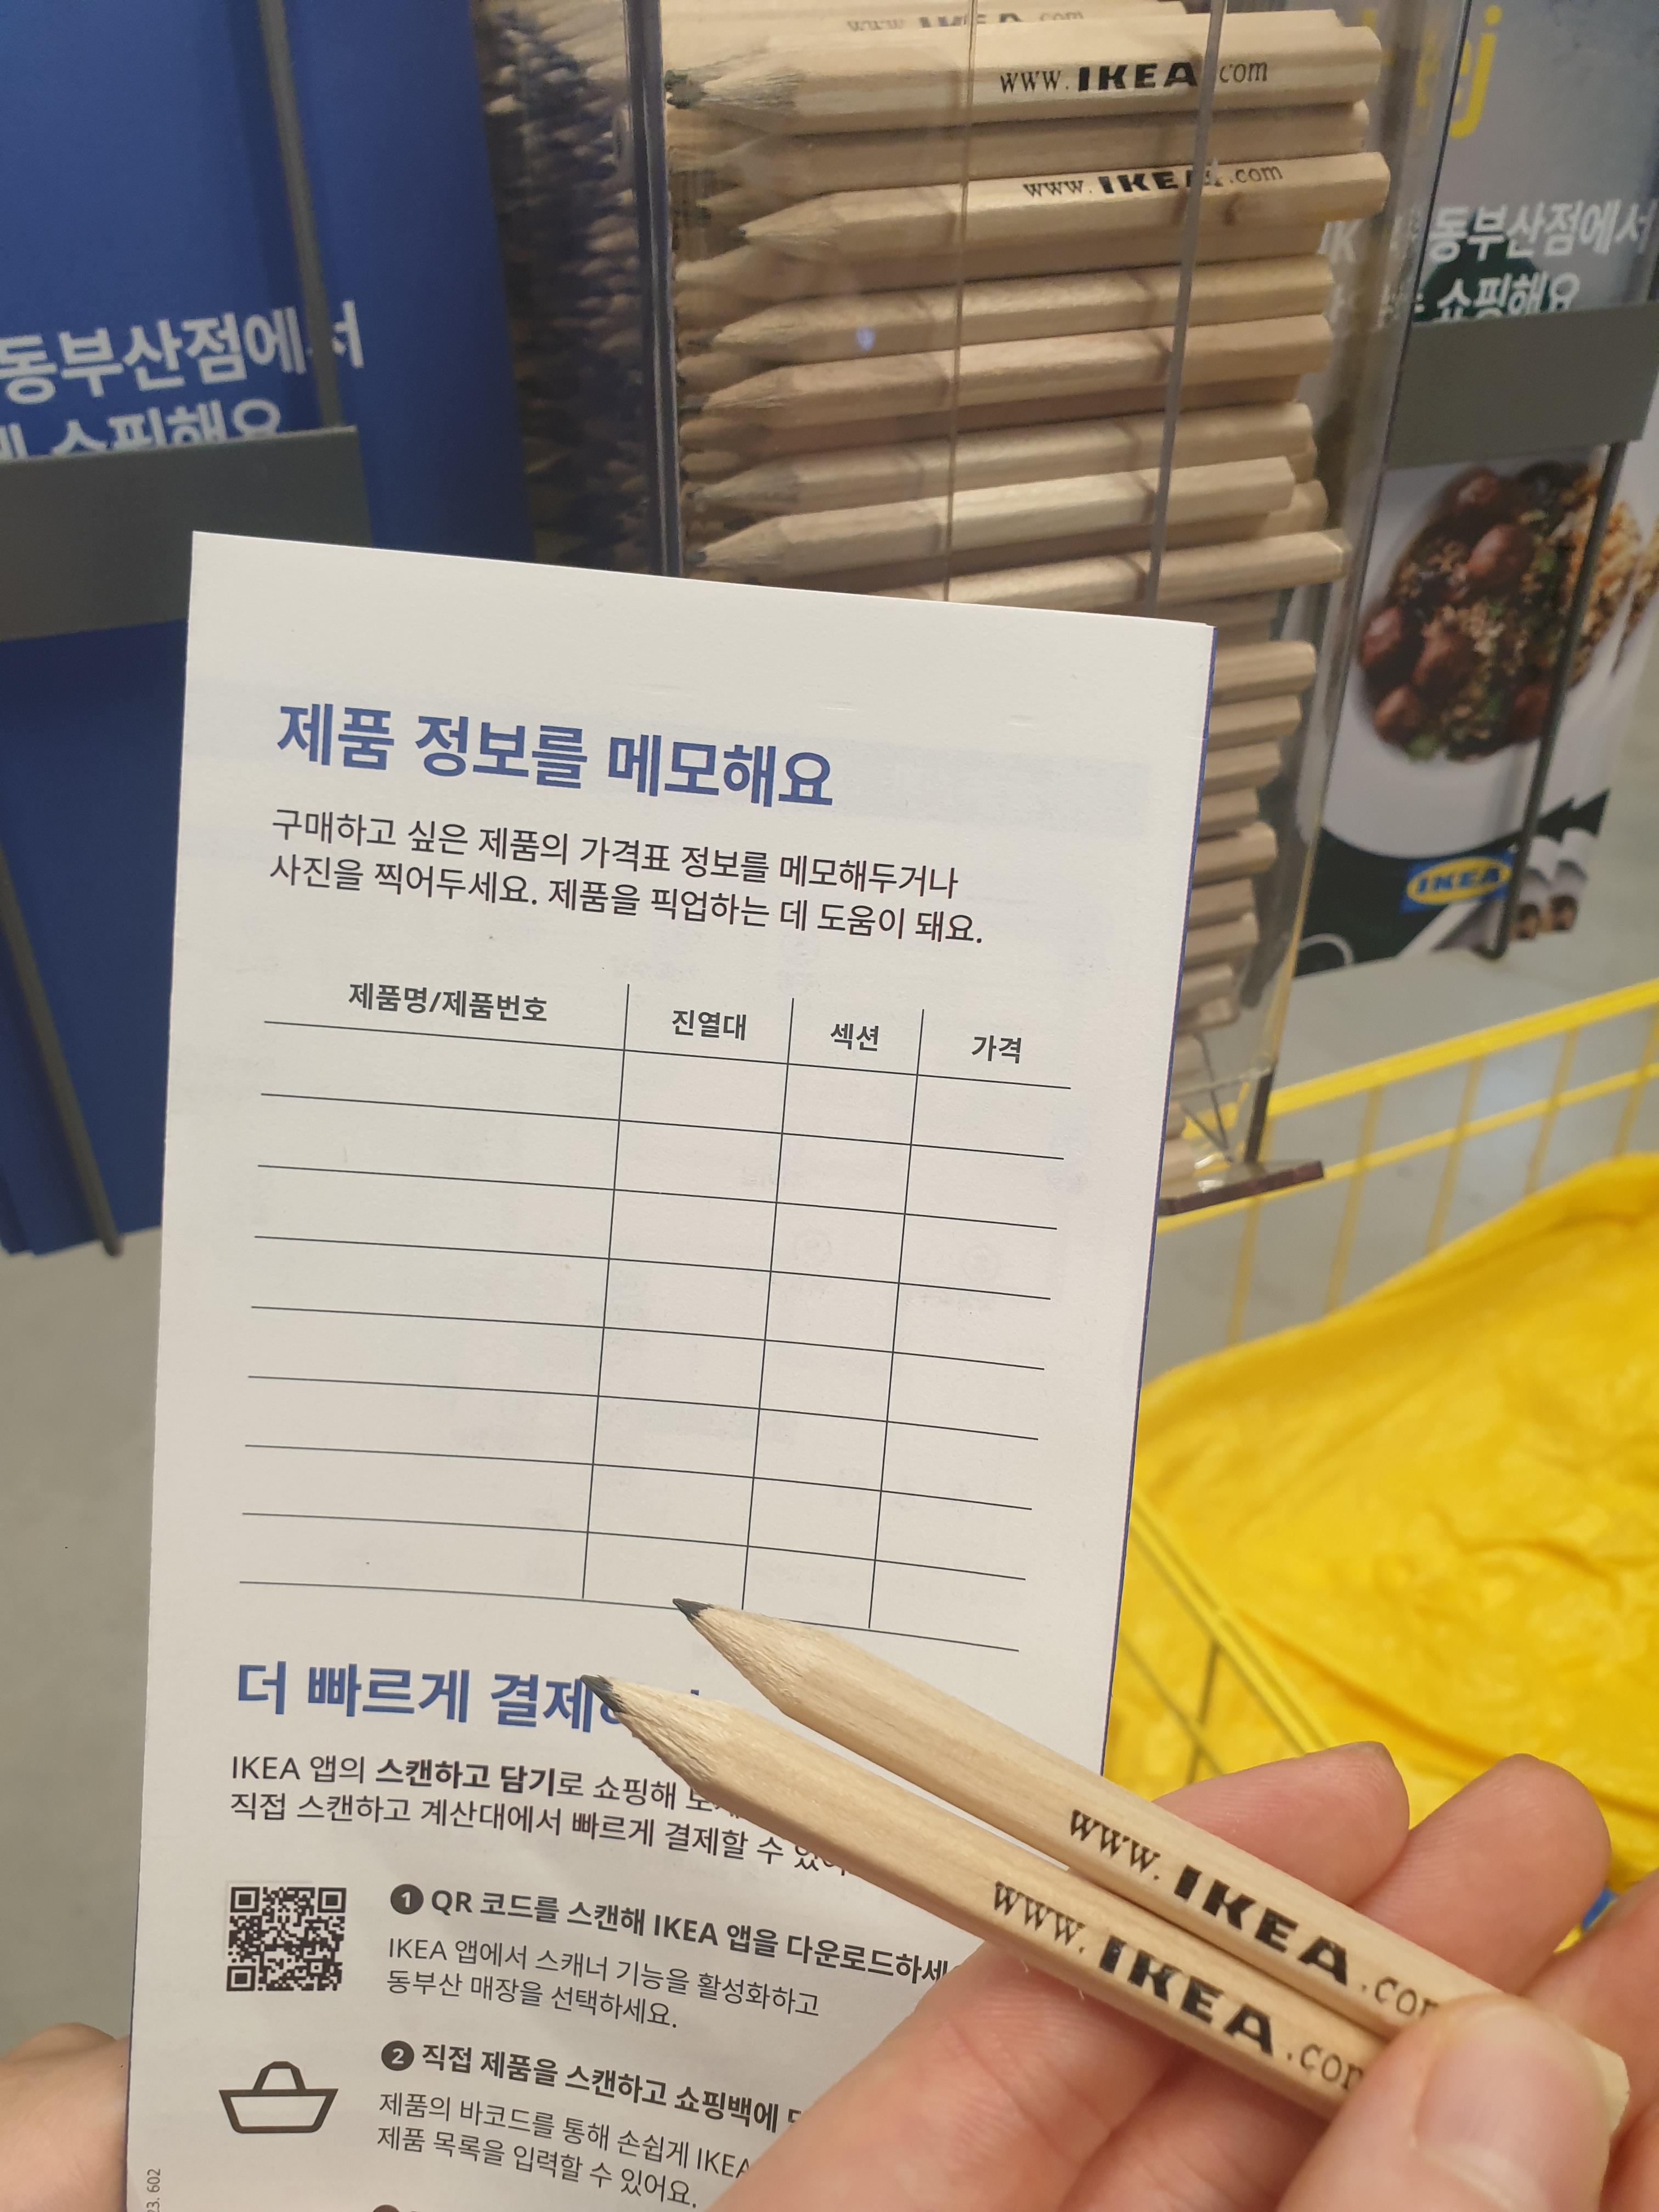 www.IKEA.com
www.IKEA.com
동부산점에서
쇼핑해요
동부산점에서
쇼핑해요
IKEA
제품 정보를 메모해요
구매하고 싶은 제품의 가격표 정보를 메모해두거나
사진을 찍어두세요. 제품을 픽업하는 데 도움이 돼요.
제품명/제품번호 진열대 섹션 가격
더 빠르게
IKEA 앱의 스캔하고 담기로 쇼핑해
직접 스캔하고 계산대에서 빠르게 결제할 수
1 QR 코드를 스캔해 IKEA 앱을
IKEA 앱에서 스캐너 기능을 활성화하고
동부산 매장을 선택하세요.
2 직접 제품을 스캔하고 쇼핑백에
제품의 바코드를 통해 손쉽게 IKEA
제품 목록을 입력할 수 있어요.
www.IKEA.com
www.IKEA.com
602